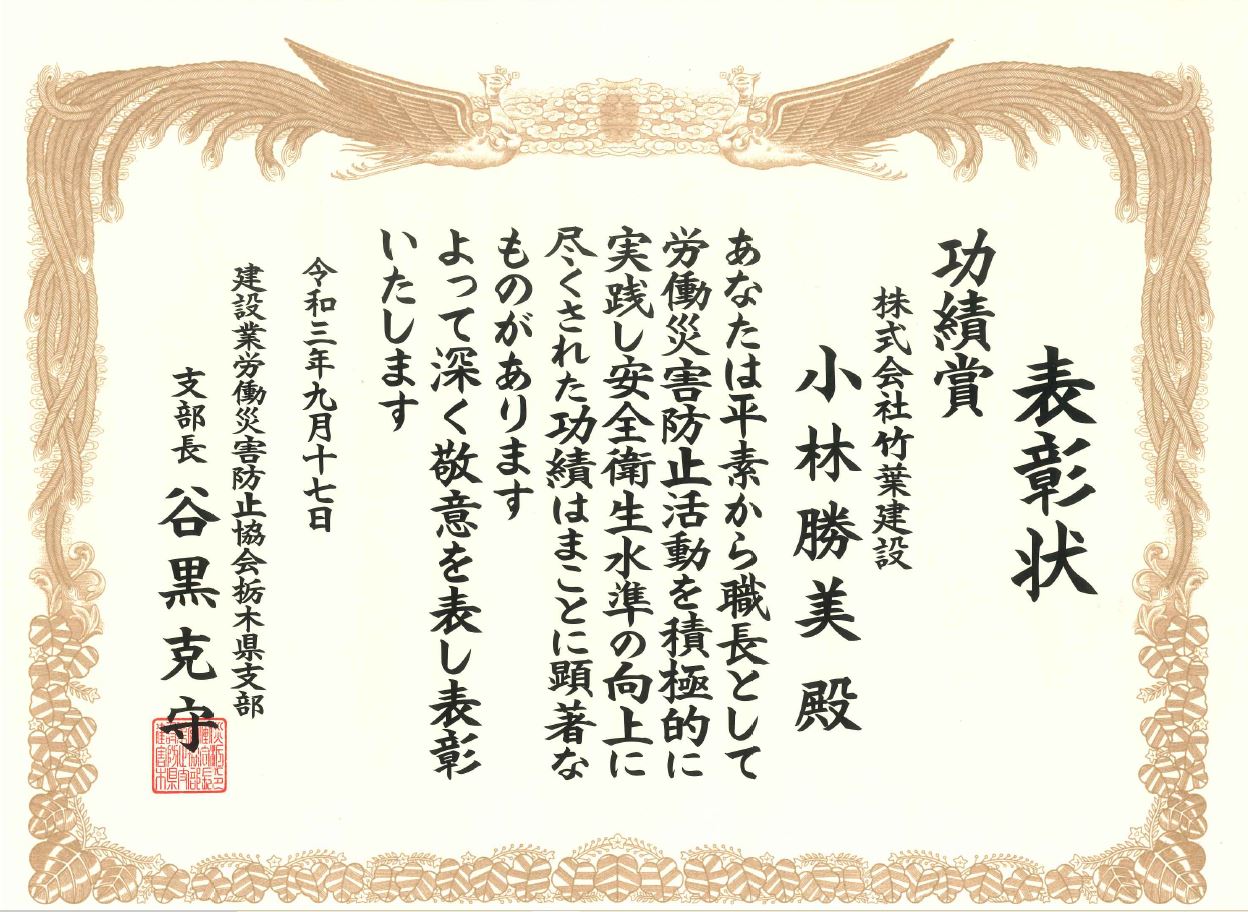 表彰状
功績賞
株式会社竹葉建設
小林勝美殿
あなたは平素から職長として
労働災害防止活動を積極的に
実践し安全衛生水準の向上に
尽くされた功績はまことに顕著な
ものがあります
よって深く敬意を表し表彰
いたします
令和三年九月十七日
建設業労働災害防止協会栃木県支部
支部長 谷黒克守